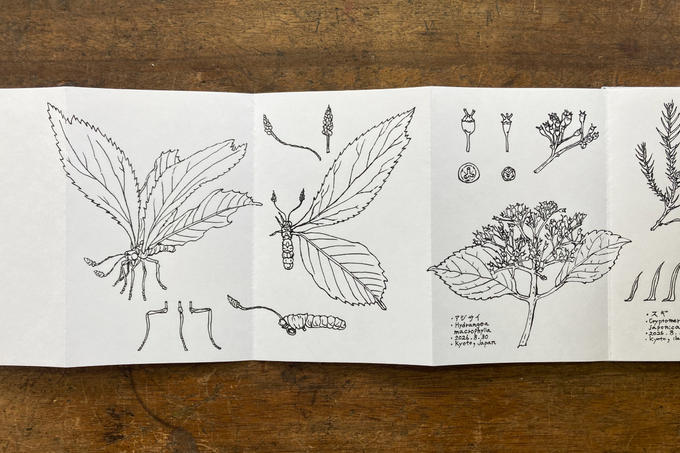 ・アジサイ
・Hydrangea
macrophylla
・2026.8.30
・Kyoto, Japan
・スギ
・Cryptomer
Japonica
・2026.8.
・Kyoto,